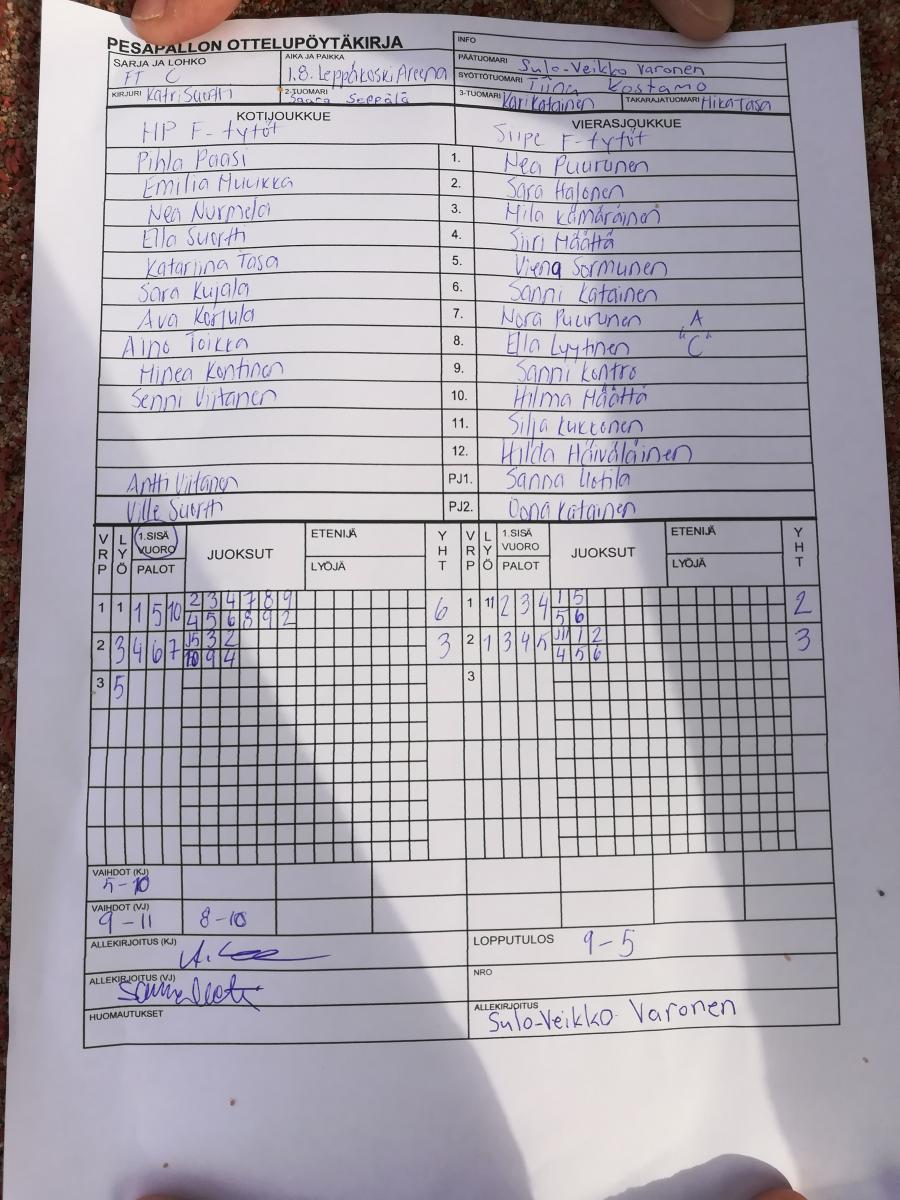 PESÄPALLON OTTELUPÖYTÄKIRJA
INFO
SARJA JA LOHKO FT C
AIKA JA PAIKKA 1.8. Leppäkoski Areena
PÄÄTUOMARI Sulo-Veikko Varonen
SYÖTTÖTUOMARI Tiina Kostamo
KIRJURI Katri Suortti
2-TUOMARI Saara Seppälä
3-TUOMARI Kari Katainen
TAKARAJATUOMARI Mika Tasa
KOTIJOUKKUE HP F-tytöt
VIERASJOUKKUE Siipe F-tytöt
Pihla Paasi 1. Nea Puurunen
Emilia Muukka 2. Sara Halonen
Nea Nurmela 3. Mila Kämäräinen
Ella Suortti 4. Siiri Määttä
Katariina Tasa 5. Viena Sormunen
Sara Kujala 6. Sanni Katainen
Ava Korjula 7. Nora Puurunen A
Aino Toikka 8. Ella Lyytinen "C"
Minea Kontinen 9. Sanni Kontro
Senni Viitanen 10. Hilma Määttä
11. Silja Lukkonen
12. Hilda Häiväläinen
Antti Viitanen PJ1. Sanna Uotila
Ville Suortti PJ2. Oona Katainen
VRP LYÖ 1.SISÄ VUORO PALOT JUOKSUT ETENIJÄ LYÖJÄ YHT VRP LYÖ 1.SISÄ VUORO PALOT JUOKSUT ETENIJÄ LYÖJÄ YHT
1 1 1 5 10 2 3 4 7 8 9 6 1 11 2 3 4 1 5 2
4 5 6 8 9 2 5 6
2 3 4 6 7 3 2 3 2 1 3 4 5 1 2 3
10 9 4 4 5 6
3 5 3
VAIHDOT (KJ)
5-10
VAIHDOT (VJ)
9-11 8-10
ALLEKIRJOITUS (KJ)
LOPPUTULOS 9-5
ALLEKIRJOITUS (VJ)
NRO
HUOMAUTUKSET
ALLEKIRJOITUS
Sulo-Veikko Varonen